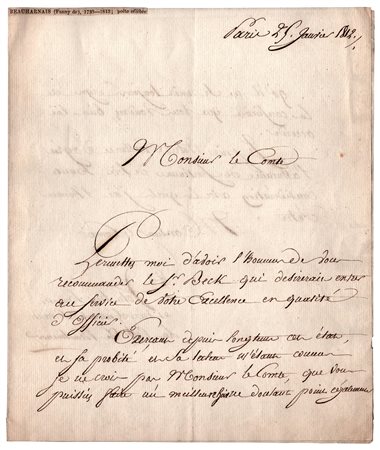 BEAUHARNAIS (Fanny de), 1738-1813; poète célèbre
Paris 25. Janvier 1812./.
Monsieur le Comte
Permettes moi d'avoir l'honneur de vous
recommander le Sr. Beck qui desirerais entrer
au service de votre Excellence en qualité
d'Officier
Exercant depuis longtems cet état,
et sa probité et sa m'étant connue
je ne crois pas Monsieur le Comte, que vous
puissiés faire un meilleur ne doutant point